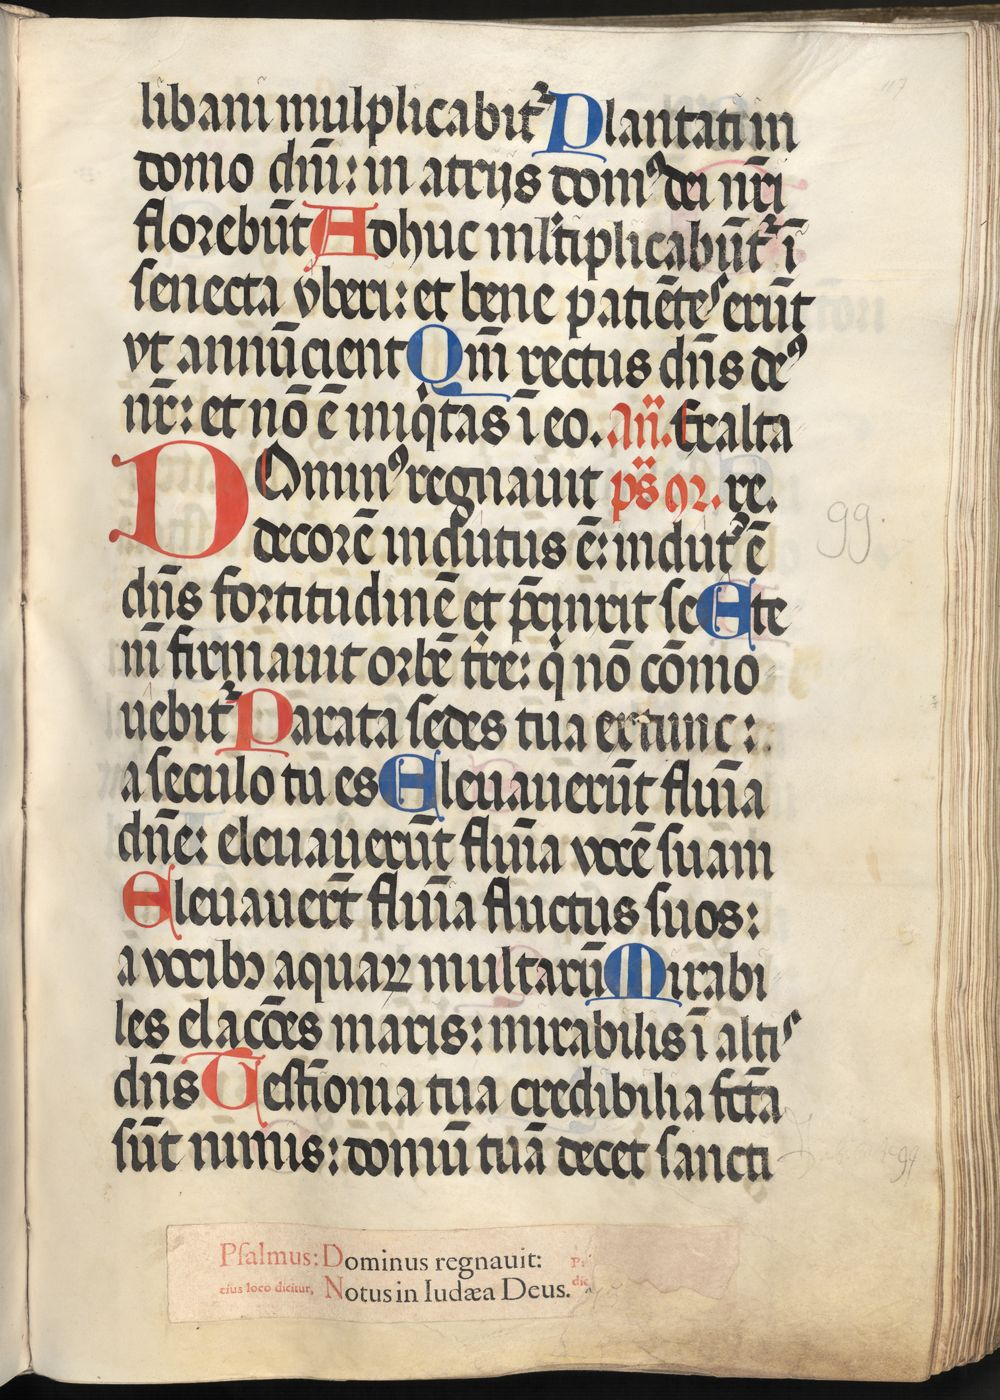 libani mulplicabit᷑ Plantati in
domo dn̄i: in atrijs domꝰ dei nr̄i
florebūt Adhuc ml̄tiplicabūt᷑ ī
senecta vberi: et bene patiētes erūt
vt annūcient Qm̄ rectus dn̄s deꝰ
nr̄: et nō ē iniqͥtas ī eo. Añ. Exalta
DOminꝰ regnauit ps̄ 92. re.
decorē indutus ē: indut᷒ ē
dn̄s fortitudinē et p̄cinxit se Ete
ni̅ firmauit orbē tr̄e: qͥ nō cōmo
uebit᷑ Parata sedes tua extunc:
a seculo tu es Eleuauerūt flūia
dn̄e: eleuauerūt flūia vocē suam
Eleuauer̄t flūia fluctus suos:
a vocibꝫ aquaꝝ multarū Mirabi
les elac̄oēs maris: mirabilis ī altis
dn̄s Testīonia tua credibilia fct̄a
sūt nimis: domū tuā decet sancti
99.
117
Psalmus: Dominus regnauit:
eius loco dicitur, Notus in Iudæa Deus.